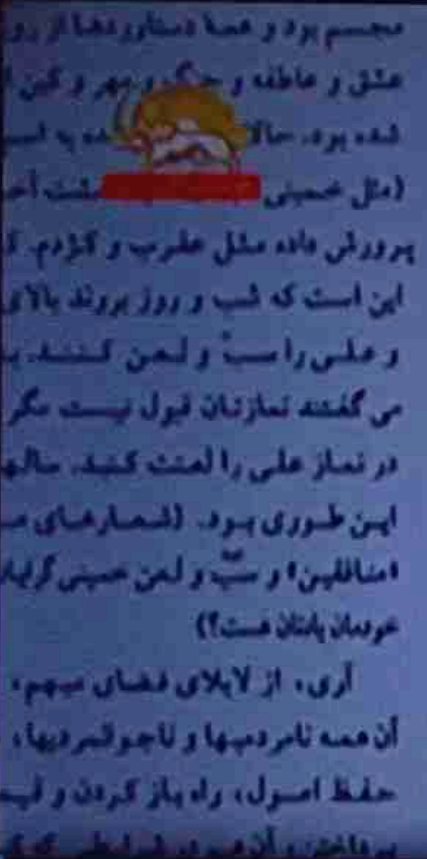 مجسم بود و همهٔ دستاوردها از رو
عشق و عاطفه و جنگ و مهر و کین
شده بود. حالا ده به اسم
(مثل خمینی مشت
پرورش داده مثل عقرب و کژدم.
این است که شب و روز بروند بالای
و علی را سبّ و لعن کنند.
می گفتند نمازتان قبول نیست مگر
در نماز علی را لعنت کنید. سالها
این طوری بود. (شعارهای
«منافقین» و سبّ و لعن خمینی گرایان
خودمان یادتان هست؟)
آری، از لابلای فضای مبهم،
آن همه نامردمیها و ناجوانمردیها،
حفظ اصول، راه باز کردن و